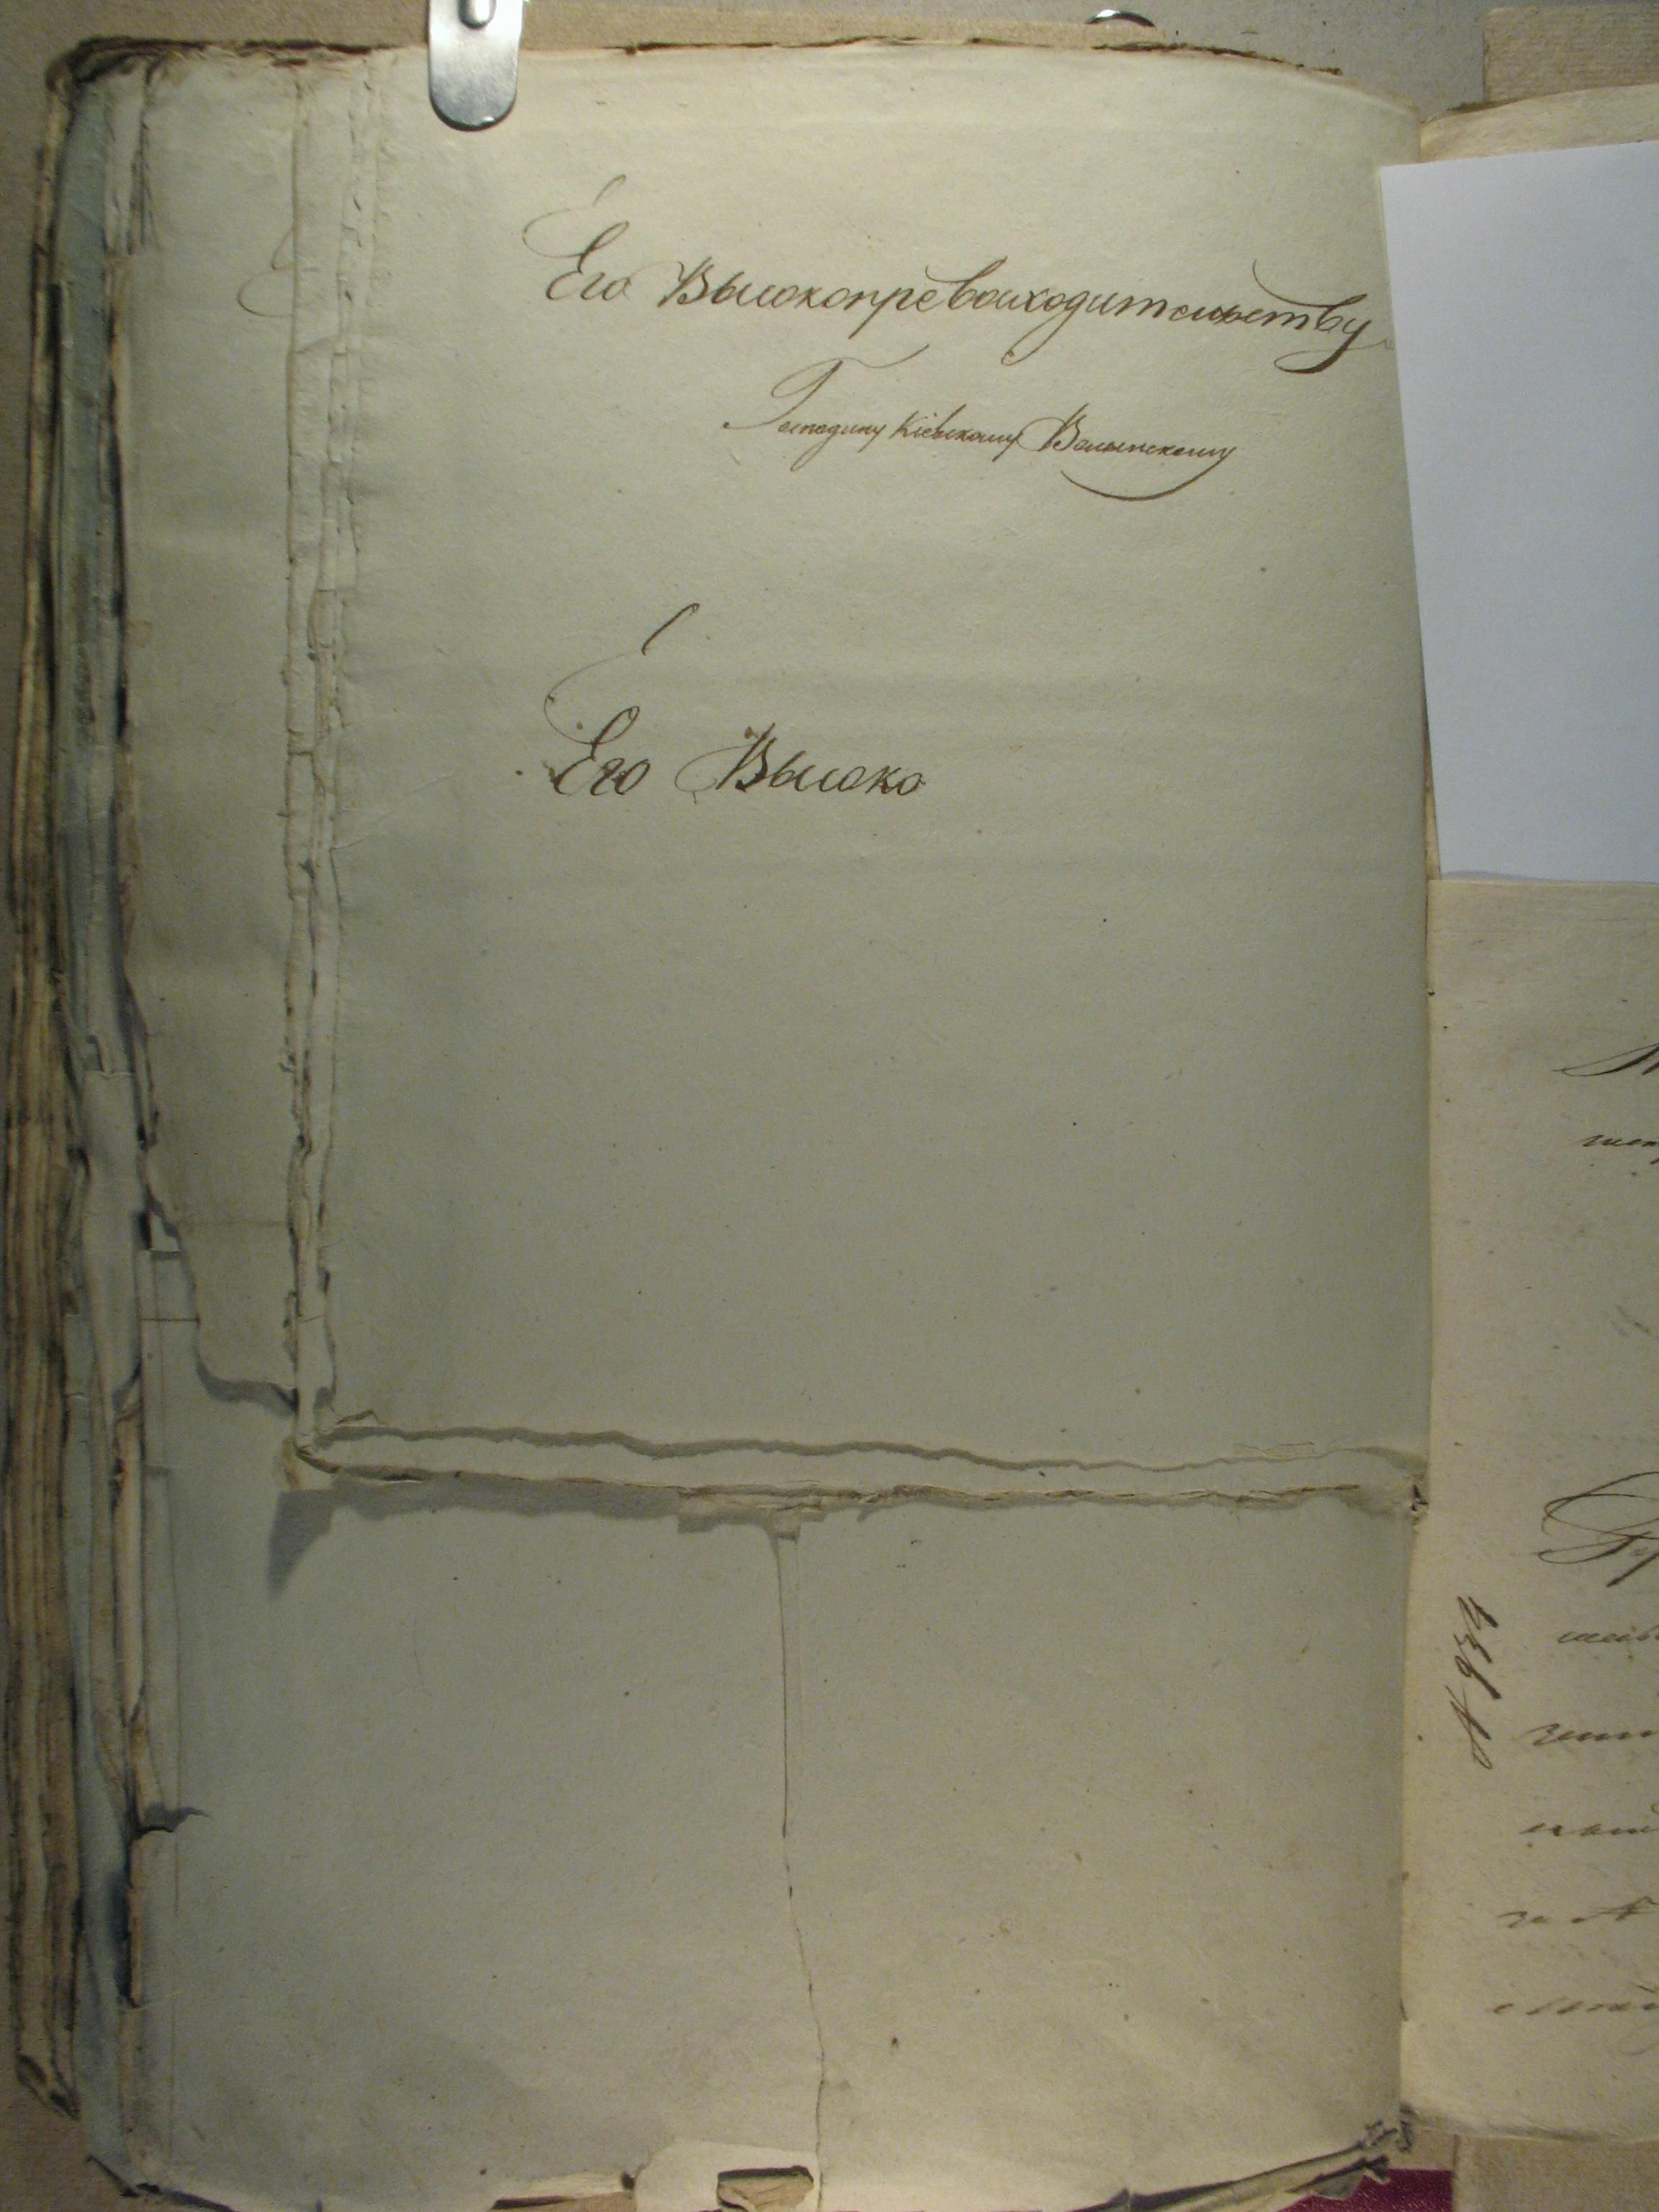 Его Высокопревосходительству
Господину Кіевскому Волынскому
Его Высоко
N 934